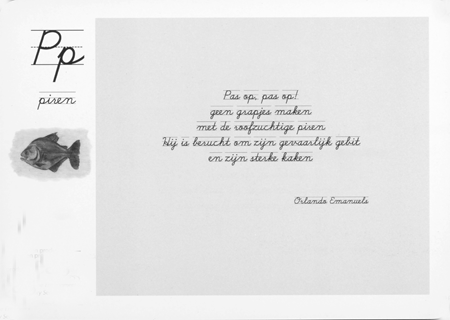 Pp
piren
Pas op, pas op!
geen grapjes maken
met de roofzuchtige piren
Hij is berucht om zijn gevaarlijk gebit
en zijn sterke kaken
Orlando Emanuels